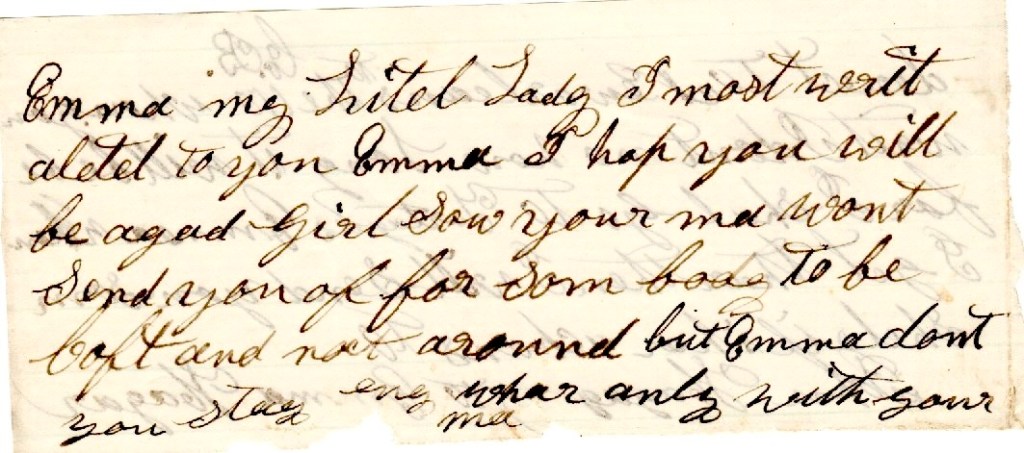 Emma my Litel Lady I most writ
aletel to you Emma I hop you will
be agad Girl Sow your ma wont
Send you of for som body to be
Coft and noct around but Emma dont
you stay eny whar anly with your
ma